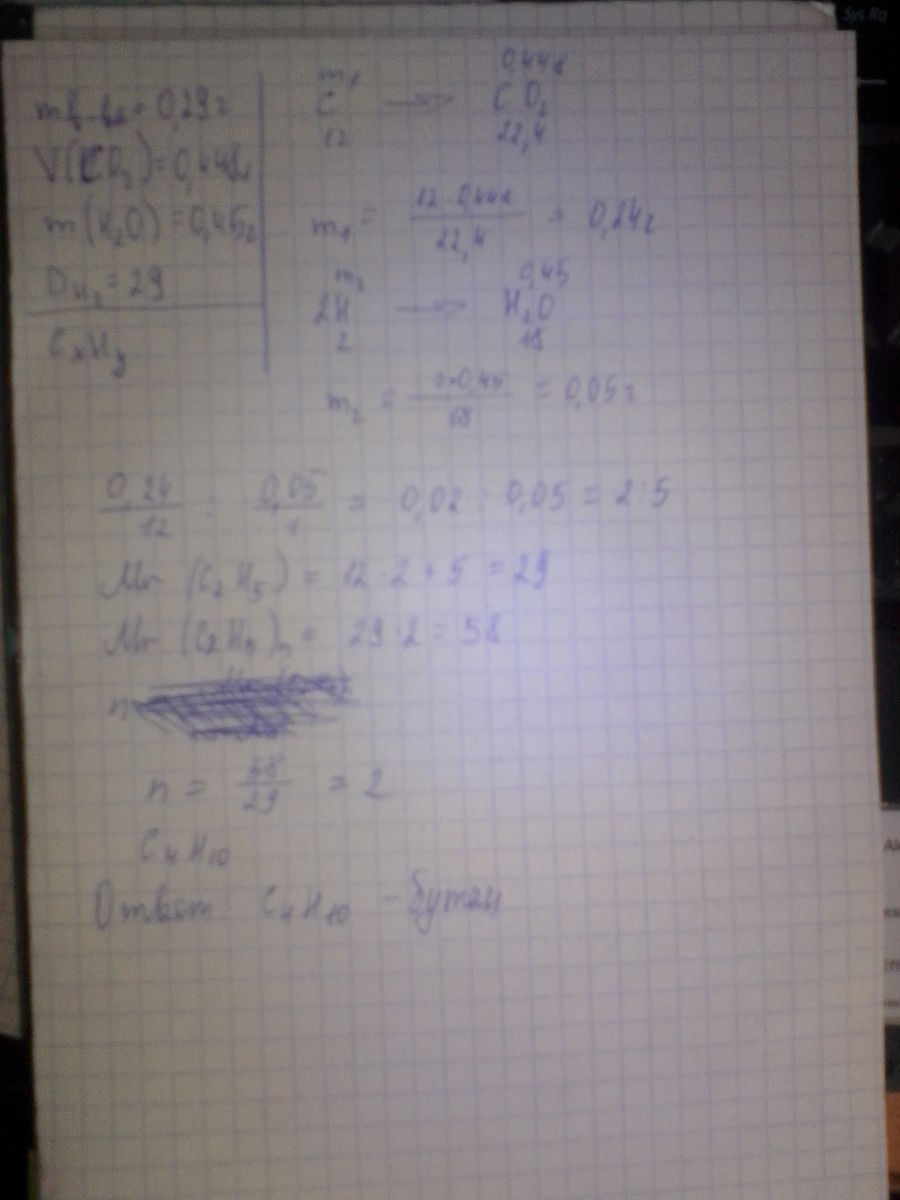 Sys Rq
m в-ва = 0,29г
V(CO₂) = 0,448л
m(H₂O) = 0,45г
D H₂ = 29
CxHy
m₁ 0,448
C → CO₂
12 22,4
m₁ = 12·0,448 / 22,4 = 0,24г
m₂ 0,45
2H → H₂O
2 18
m₂ = 2·0,45 / 18 = 0,05г
0,24/12 : 0,05/1 = 0,02 : 0,05 = 2:5
Mr (C₂H₅) = 12·2+5 = 29
Mr (C₂H₅)n = 29·2 = 58
n
n = 58/29 = 2
C₄H₁₀
Ответ C₄H₁₀ - бутан